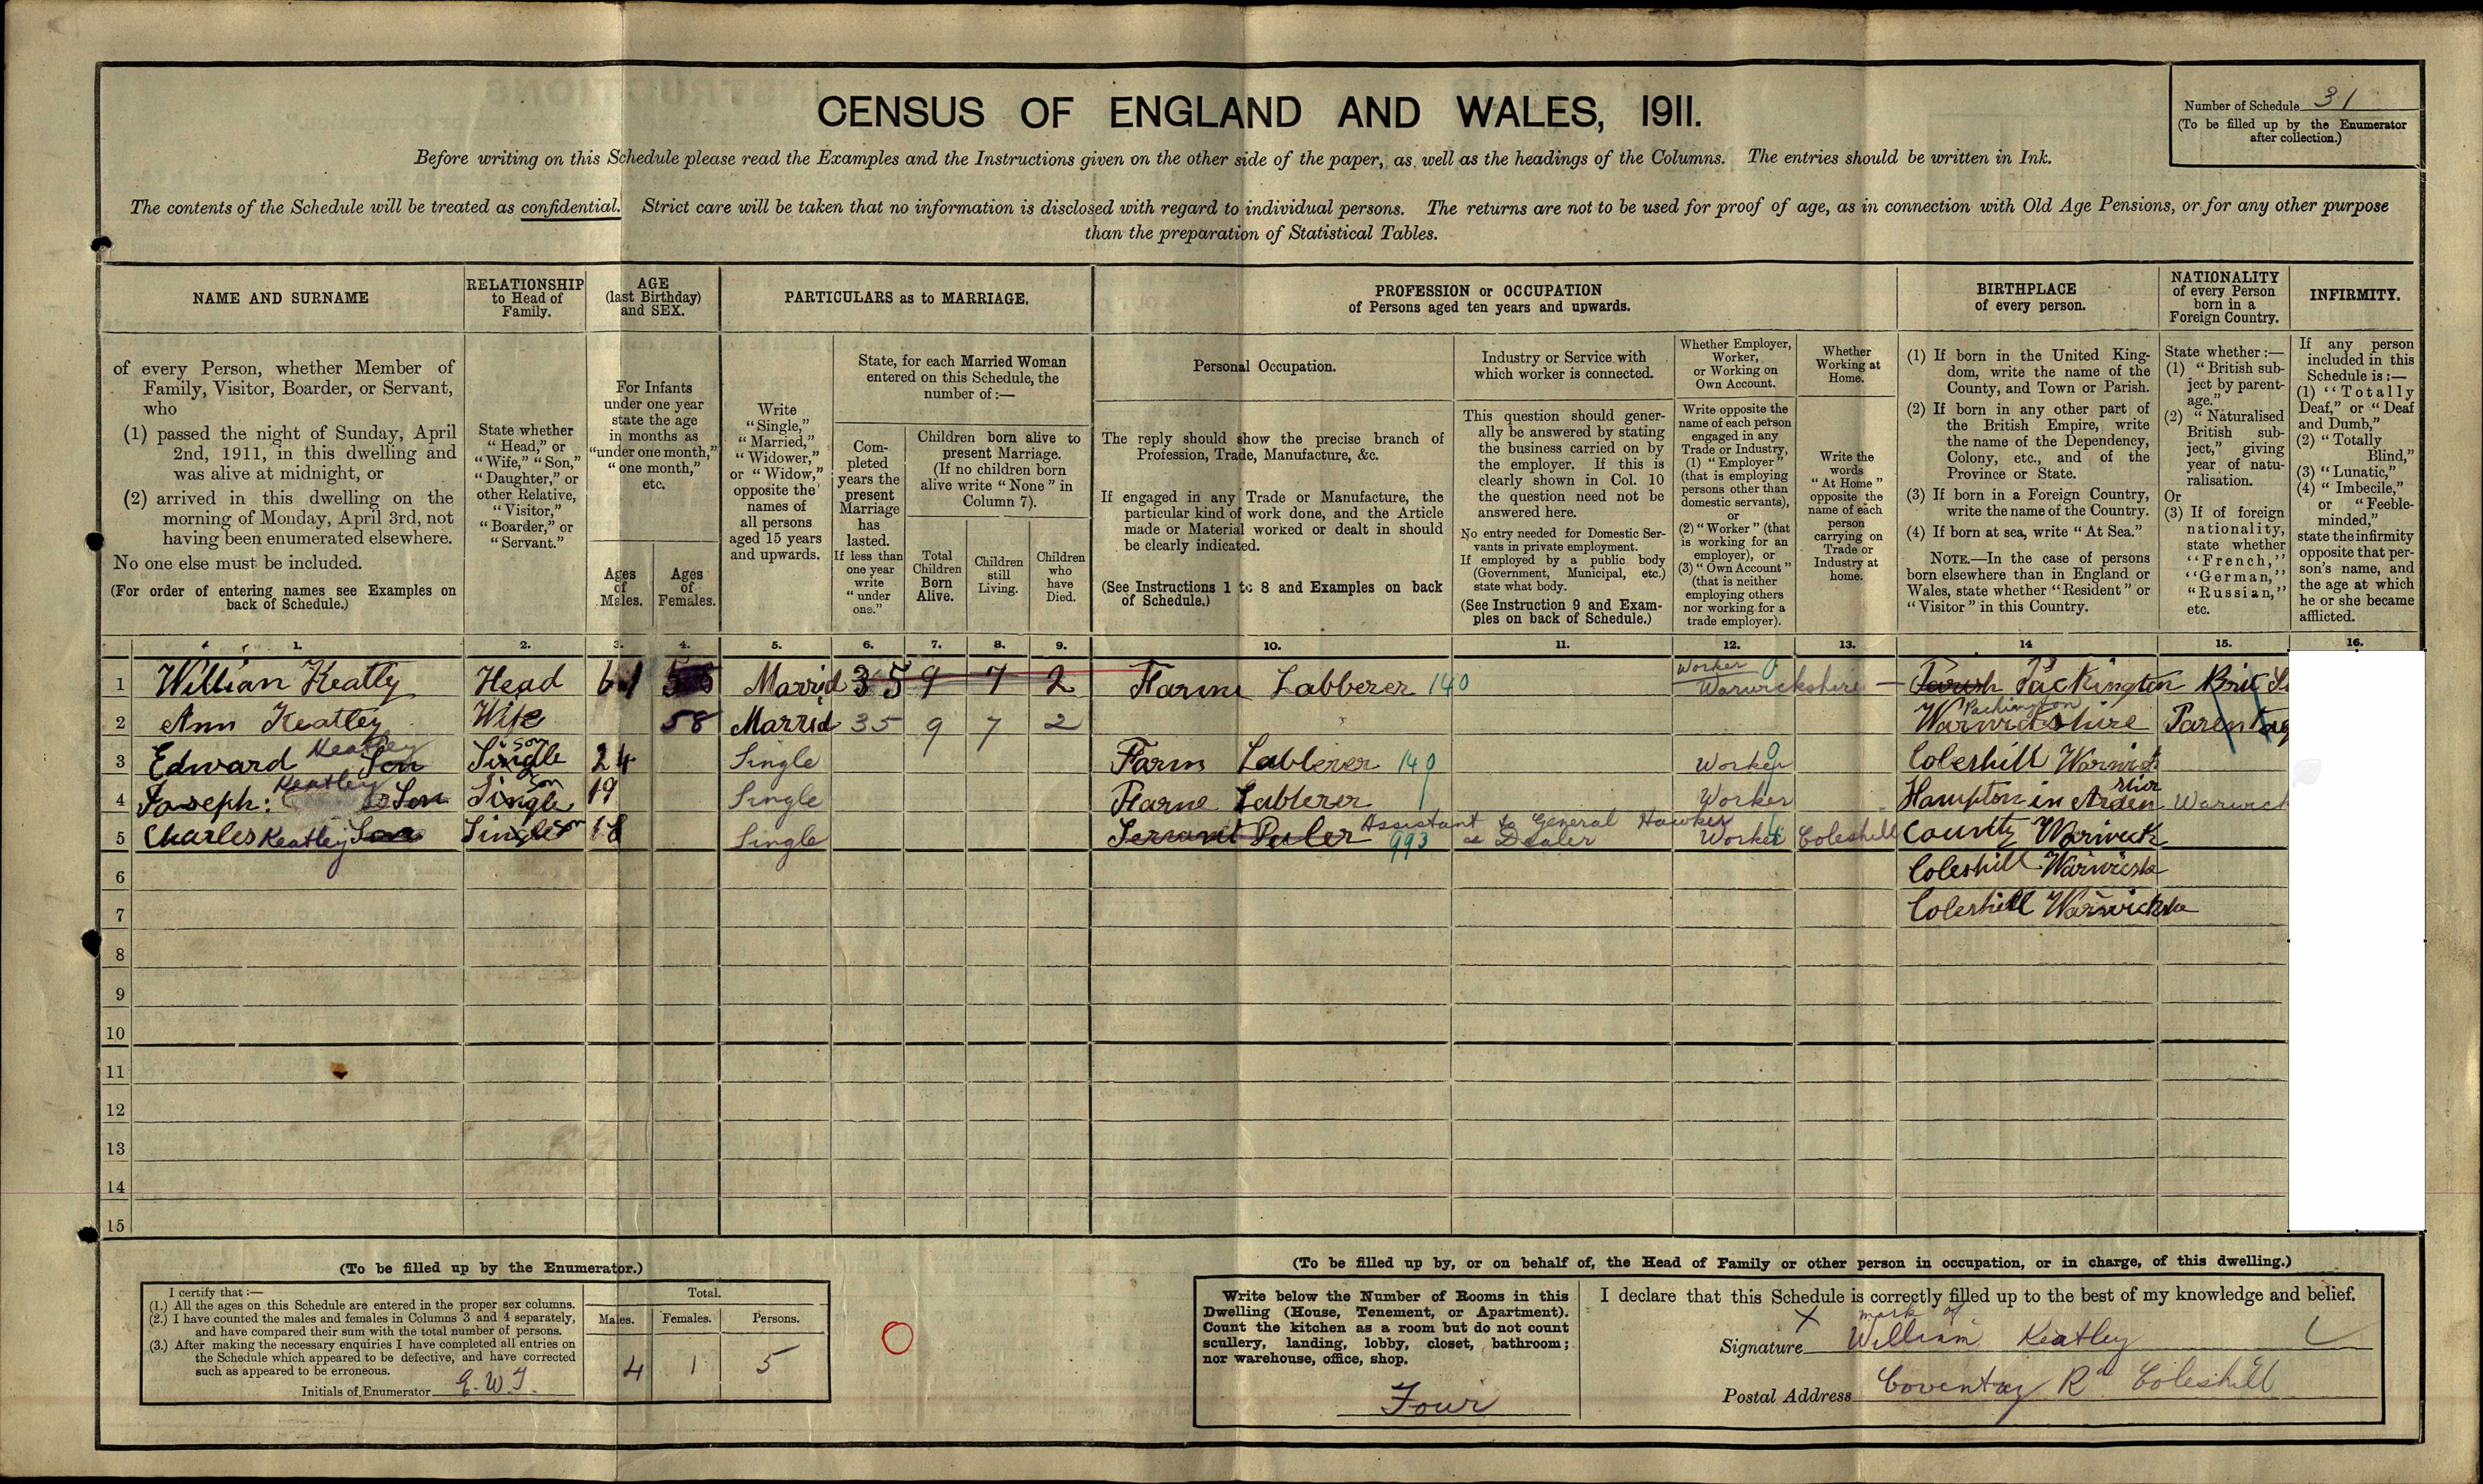 CENSUS OF ENGLAND AND WALES, 1911.
Number of Schedule 31
(To be filled up by the Enumerator
after collection.)
Before writing on this Schedule please read the Examples and the Instructions given on the other side of the paper, as well as the headings of the Columns. The entries should be written in Ink.
The contents of the Schedule will be treated as confidential. Strict care will be taken that no information is disclosed with regard to individual persons. The returns are not to be used for proof of age, as in connection with Old Age Pensions, or for any other purpose
than the preparation of Statistical Tables.
NAME AND SURNAME
of every Person, whether Member of
Family, Visitor, Boarder, or Servant,
who
(1) passed the night of Sunday, April
2nd, 1911, in this dwelling and
was alive at midnight, or
(2) arrived in this dwelling on the
morning of Monday, April 3rd, not
having been enumerated elsewhere.
No one else must be included.
(For order of entering names see Examples on
back of Schedule.)
RELATIONSHIP
to Head of
Family.
State whether
"Head," or
"Wife," "Son,"
"Daughter," or
other Relative,
"Visitor,"
"Boarder," or
"Servant."
AGE
(last Birthday)
and SEX.
For Infants
under one year
state the age
in months as
"under one month,"
"one month,"
etc.
Ages
of
Males.
Ages
of
Females.
PARTICULARS as to MARRIAGE.
Write
"Single,"
"Married,"
"Widower,"
or "Widow,"
opposite the
names of
all persons
aged 15 years
and upwards.
State, for each Married Woman
entered on this Schedule, the
number of:—
Com-
pleted
years the
present
Marriage
has
lasted.
If less than
one year
write
"under
one."
Children born alive to
present Marriage.
(If no children born
alive write "None" in
Column 7).
Total
Children
Born
Alive.
Children
still
Living.
Children
who
have
Died.
PROFESSION or OCCUPATION
of Persons aged ten years and upwards.
Personal Occupation.
The reply should show the precise branch of
Profession, Trade, Manufacture, &c.
If engaged in any Trade or Manufacture, the
particular kind of work done, and the Article
made or Material worked or dealt in should
be clearly indicated.
(See Instructions 1 to 8 and Examples on back
of Schedule.)
Industry or Service with
which worker is connected.
This question should gener-
ally be answered by stating
the business carried on by
the employer. If this is
clearly shown in Col. 10
the question need not be
answered here.
No entry needed for Domestic Ser-
vants in private employment.
If employed by a public body
(Government, Municipal, etc.)
state what body.
(See Instruction 9 and Exam-
ples on back of Schedule.)
Whether Employer,
Worker,
or Working on
Own Account.
Write opposite the
name of each person
engaged in any
Trade or Industry,
(1) "Employer"
(that is employing
persons other than
domestic servants),
or
(2) "Worker" (that
is working for an
employer), or
(3) "Own Account"
(that is neither
employing others
nor working for a
trade employer).
Whether
Working at
Home.
Write the
words
"At Home"
opposite the
name of each
person
carrying on
Trade or
Industry at
home.
BIRTHPLACE
of every person.
(1) If born in the United King-
dom, write the name of the
County, and Town or Parish.
(2) If born in any other part of
the British Empire, write
the name of the Dependency,
Colony, etc., and of the
Province or State.
(3) If born in a Foreign Country,
write the name of the Country.
(4) If born at sea, write "At Sea."
NOTE.—In the case of persons
born elsewhere than in England or
Wales, state whether "Resident" or
"Visitor" in this Country.
NATIONALITY
of every Person
born in a
Foreign Country.
State whether:—
(1) "British sub-
ject by parent-
age."
(2) "Naturalised
British sub-
ject," giving
year of natu-
ralisation.
Or
(3) If of foreign
nationality,
state whether
"French,"
"German,"
"Russian,"
etc.
INFIRMITY.
If any person
included in this
Schedule is:—
(1) "Totally
Deaf," or "Deaf
and Dumb,"
(2) "Totally
Blind,"
(3) "Lunatic,"
(4) "Imbecile,"
or "Feeble-
minded,"
state the infirmity
opposite that per-
son's name, and
the age at which
he or she became
afflicted.
1. 2. 3. 4. 5. 6. 7. 8. 9. 10. 11. 12. 13. 14 15. 16.
1 William Keatley Head 61 Marrid 35 9 7 2 Farm Labberer 140 Worker 0 Warwickshire Parish Packington Brit
2 Ann Keatley Wife 58 Marrid 35 9 7 2 Packington Warwickshire Parentag
3 Edward Keatley Son Single Son 24 Single Farm Labberer 140 Worker 0 Coleshill Warwick
4 Joseph: Keatley Son Single Son 19 Single Farme Labberer Worker Hampton in Arden Warwick
5 Charles Keatley Son Single Son 18 Single Servant Assistant to General Hawker 993 Dealer Worker Coleshill County Warwick
6 Coleshill
7 Coleshill
8
9
10
11
12
13
14
15
(To be filled up by the Enumerator.)
I certify that:—
(1.) All the ages on this Schedule are entered in the proper sex columns.
(2.) I have counted the males and females in Columns 3 and 4 separately,
and have compared their sum with the total number of persons.
(3.) After making the necessary enquiries I have completed all entries on
the Schedule which appeared to be defective, and have corrected
such as appeared to be erroneous.
Initials of Enumerator
Total.
Males. Females. Persons.
4 1 5
(To be filled up by, or on behalf of, the Head of Family or other person in occupation, or in charge, of this dwelling.)
Write below the Number of Rooms in this
Dwelling (House, Tenement, or Apartment).
Count the kitchen as a room but do not count
scullery, landing, lobby, closet, bathroom;
nor warehouse, office, shop.
Four
I declare that this Schedule is correctly filled up to the best of my knowledge and belief.
X mark of
Signature William Keatley
Postal Address Coventry Rd Coleshill